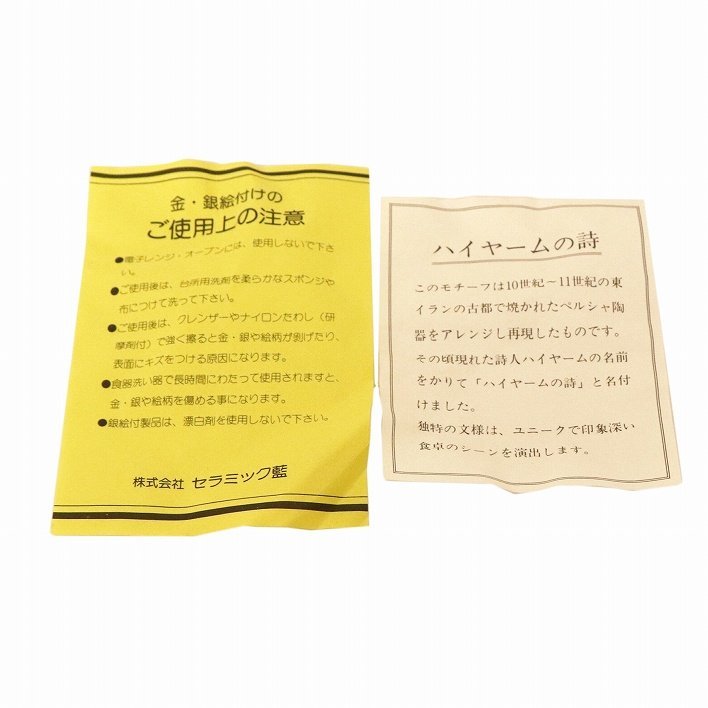 金・銀絵付けの
ご使用上の注意
●電子レンジ・オーブンには、使用しないで下さ
い。
●ご使用後は、台所用洗剤を柔らかなスポンジや
布につけて洗って下さい。
●ご使用後は、クレンザーやナイロンたわし（研
摩剤付）で強く擦ると金・銀や絵柄が剥げたり、
表面にキズをつける原因になります。
●食器洗い器で長時間にわたって使用されますと、
金・銀や絵柄を傷める事になります。
●銀絵付製品は、漂白剤を使用しないで下さい。
株式会社 セラミック藍
ハイヤームの詩
このモチーフは10世紀～11世紀の東
イランの古都で焼かれたペルシャ陶
器をアレンジし再現したものです。
その頃現れた詩人ハイヤームの名前
をかりて「ハイヤームの詩」と名付
けました。
独特の文様は、ユニークで印象深い
食卓のシーンを演出します。